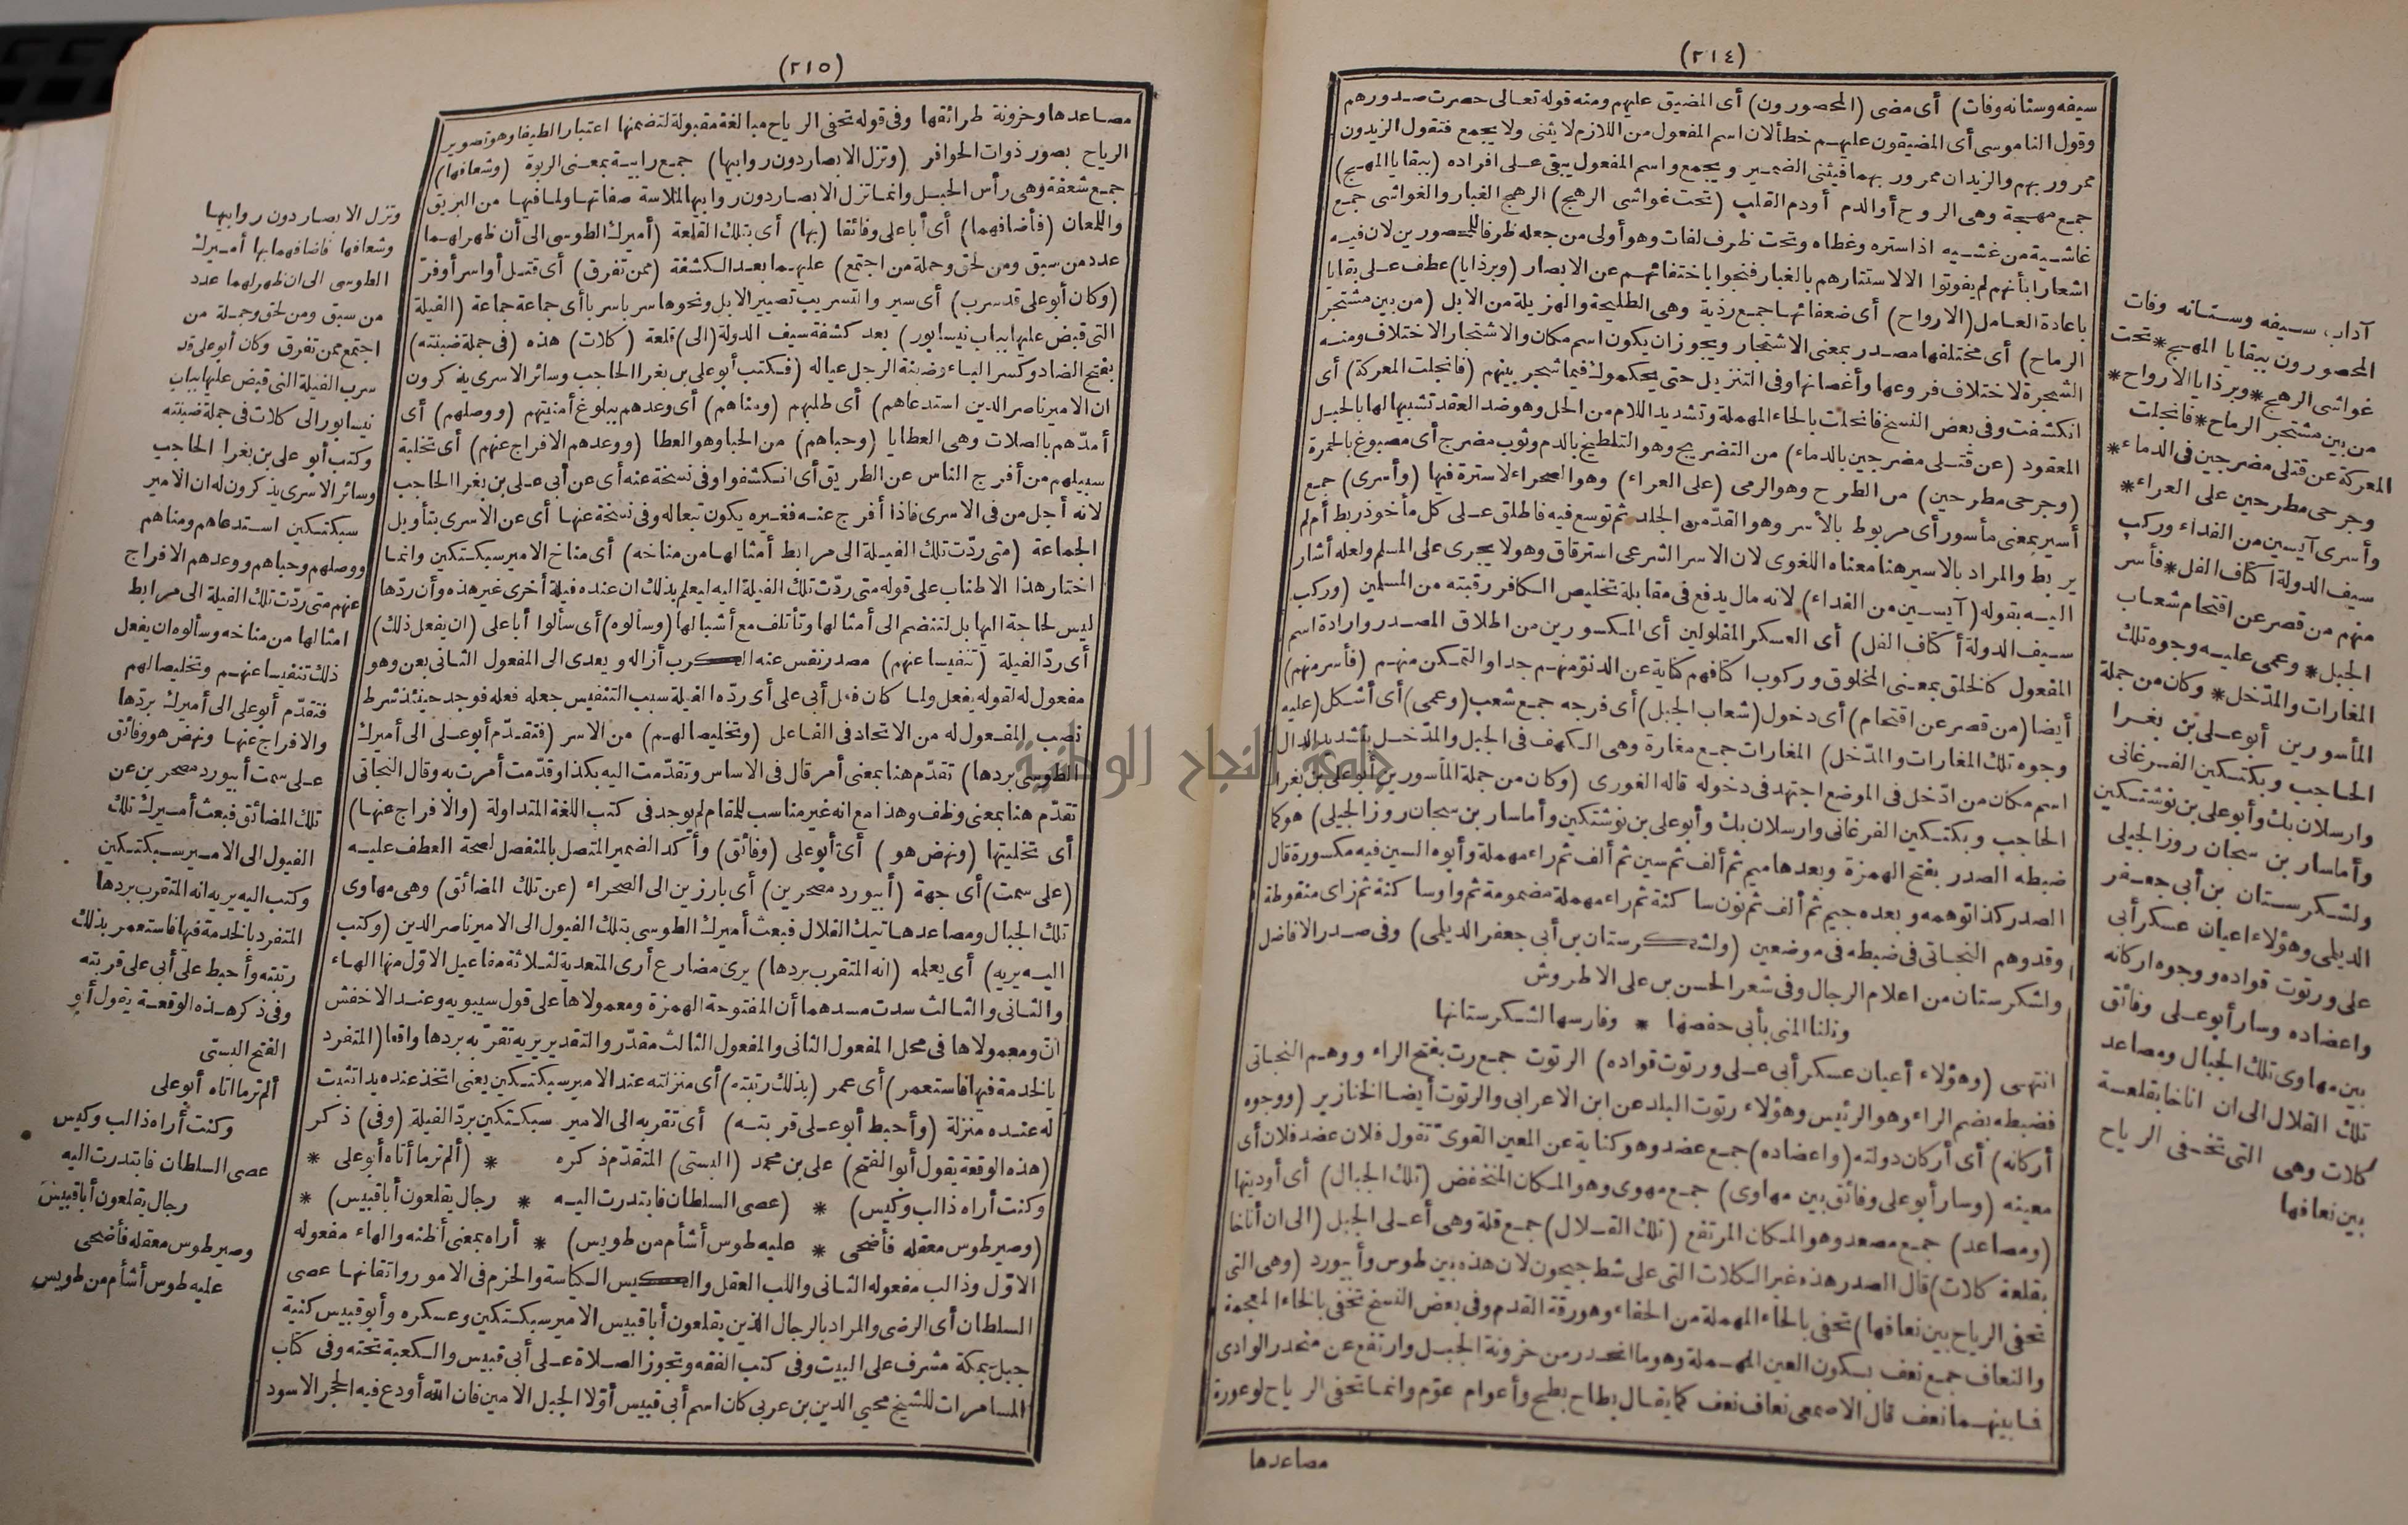 (٢١٤)
سيفه وسنانه وفات) أى مضى (المحصورون) أى المضيق عليهم ومنه قوله تعالى حصرت صدورهم
وقول الناموسى أى المضيقون عليهم خطأ لان اسم المفعول من اللازم لا يثنى ولا يجمع فتقول الزيدون
ممرور بهم والزيدان ممرور بهما فيثنى الضمير ويجمع واسم المفعول يبقى على افراده (ببقايا المهج)
جمع مهجة وهى الروح أو الدم أودم القلب (تحت غواشى الرهج) الرهج الغبار والغواشى جمع
غاشية من غشيه اذا ستره وغطاه وتحت ظرف لفات وهو أولى من جعله ظرفا للمحصورين لان فيه
اشعارا بأنهم لم يفوتوا الا لاستتارهم بالغبار فنجوا باختفائهم عن الابصار (وبرذايا) عطف على بقايا
باعادة العامل (الارواح) أى ضعفائها جمع رذية وهى الطليحة والهزيلة من الابل (من بين مشتجر
الرماح) أى مختلفها مصدر بمعنى الاشتجار ويجوز ان يكون اسم مكان والاشتجار الاختلاف ومنه
الشجرة لاختلاف فروعها وأغصانها وفى التنزيل حتى يحكموك فيما شجر بينهم (فانجلت المعركة) أى
انكشفت وفى بعض النسخ فانحلت بالحاء المهملة وتشديد اللام من الحل وهو ضد العقد تشبيها لها بالحبل
المعقود (عن قتلى مضرجين بالدماء) من التضريج وهو التلطيخ بالدم وثوب مضرج أى مصبوغ بالحمرة
(وجرحى مطرحين) من الطرح وهو الرمى (على العراء) وهو الصحراء لا سترة فيها (وأسرى) جمع
أسير بمعنى مأسور أى مربوط بالأسر وهو القد من الجلد ثم توسع فيه فاطلق على كل مأخوذ ربط أم لم
يربط والمراد بالاسير هنا معناه اللغوى لان الاسر الشرعى استرقاق وهو لا يجرى على المسلم ولعله أشار
اليه بقوله (آيسين من الفداء) لانه مال يدفع فى مقابلة تخليص الكافر رقبته من المسلمين (وركب
سيف الدولة أكتاف الفل) أى العسكر المفلولين أى المكسورين من اطلاق المصدر وارادة اسم
المفعول كالخلق بمعنى المخلوق وركوب اكتافهم كناية عن الدنو منهم جدا والتمكن منهم (فأسر منهم)
أيضا (من قصر عن اقتحام) أى دخول (شعاب الجبل) أى فرجه جمع شعب (وعمى) أى أشكل (عليه
وجوه تلك المغارات والمدّخل) المغارات جمع مغارة وهى الكهف فى الجبل والمدّخل بتشديد الدال
اسم مكان من ادّخل فى الموضع اجتهد فى دخوله قاله الغورى (وكان من جملة المأسورين أبو على بن بغرا
الحاجب وبكتكين الفرغانى وارسلان بك وأبو على بن نوشتكين وأماسار بن سجان روز الجيلى) هو كما
ضبطه الصدر بفتح الهمزة وبعدها ميم ثم ألف ثم سين ثم ألف ثم راء مهملة وأبوه السين فيه مكسورة قال
الصدر كذا توهمه وبعده جيم ثم ألف ثم نون ساكنة ثم راء مهملة مضمومة ثم واو ساكنة ثم زاى منقوطة
وقد وهم النجاتى فى ضبطه فى موضعين (ولشكرستان بن أبى جعفر الديلمى) وفى صدر الافاضل
ولشكرستان من اعلام الرجال وفى شعر الحسن بن على الاطروش
ونلنا المنى بأبى حفصها * وفارسها لشكرستانها
انتهى (وهؤلاء أعيان عسكر أبى على ورتوت قواده) الرتوت جمع رت بفتح الراء ووهم النجاتى
فضبطه بضم الراء وهو الرئيس وهؤلاء رتوت البلد عن ابن الاعرابى والرتوت أيضا الخنازير (ووجوه
أركانه) أى أركان دولته (واعضاده) جمع عضد وهو كناية عن المعين القوى تقول فلان عضد فلان أى
معينه (وسار أبو على وفائق بين مهاوى) جمع مهوى وهو المكان المنخفض (تلك الجبال) أى أوديتها
(ومصاعد) جمع مصعد وهو المكان المرتفع (تلك القلال) جمع قلة وهى أعلى الجبل (الى ان أناخا
بقلعة كلات) قال الصدر هذه غير الكلات التى على شط جيحون لان هذه بين طوس وأبيورد (وهى التى
تحفى الرياح بين نعافها) تحفى بالحاء المهملة من الحفاء وهو رقة القدم وفى بعض النسخ تخفى بالخاء المعجمة
والنعاف جمع نعف بسكون العين المهملة وهو ما انحدر من حزونة الجبل وارتفع عن منحدر الوادى
فما بينهما نعف قال الاصمعى نعاف نعف كما يقال بطاح بطح وأعوام عوّم وانما تحفى الرياح لوعورة
مصاعدها
آداب سيفه وسنانه وفات
المحصورون ببقايا المهج * تحت
غواشى الرهج * وبرذايا الارواح *
من بين مشتجر الرماح * فانجلت
المعركة عن قتلى مضرجين فى الدماء *
وجرحى مطرحين على العراء *
وأسرى آيسين من الفداء وركب
سيف الدولة أكتاف الفل * فأسر
منهم من قصر عن اقتحام شعاب
الجبل * وعمى عليه وجوه تلك
المغارات والمدّخل * وكان من جملة
المأسورين أبو على بن بغرا
الحاجب وبكتكين الفرغانى
وارسلان بك وأبو على بن نوشتكين
وأماسار بن سجان روز الجيلى
ولشكرستان بن أبى جعفر
الديلمى وهؤلاء اعيان عسكر أبى
على ورتوت قواده ووجوه اركانه
واعضاده وسار أبو على وفائق
بين مهاوى تلك الجبال ومصاعد
تلك القلال الى ان اناخا بقلعة
كلات وهى التى تخفى الرياح
بين نعافها
(٢١٥)
مصاعدها وحزونة طرائقها وفى قوله تحفى الرياح مبالغة مقبولة لتضمنها اعتبارا لطيفا وهو تصوير
الرياح بصور ذوات الحوافر (وتزل الابصار دون روابيها) جمع رابية بمعنى الربوة (وشعافها)
جمع شعفة وهى رأس الجبل وانما تزل الابصار دون روابيها لملاسة صفاتها ولما فيها من البريق
واللمعان (فأضافهما) أى أبا على وفائقا (بها) أى بتلك القلعة (أميرك الطوسى الى أن ظهر لهما
عدد من سبق ومن لحق وجملة من اجتمع) عليهما بعد الكشفة (ممن تفرق) أى قتل أو اسر أو فرّ
(وكان أبو على قد سرب) أى سير والتسريب تصيير الابل ونحوها سربا سربا أى جماعة جماعة (الفيلة
التى قبض عليها بباب نيسابور) بعد كشفة سيف الدولة (الى) قلعة (كلات) هذه (فى جملة ضبنته)
بفتح الضاد وكسر الباء وضبنة الرجل عياله (فكتب أبو على بن بغرا الحاجب وسائر الاسرى يذكرون
ان الامير ناصر الدين استدعاهم) أى طلبهم (ومناهم) أى وعدهم ببلوغ أمنيتهم (ووصلهم) أى
أمدّهم بالصلات وهى العطايا (وحباهم) من الحبا وهو العطا (ووعدهم الافراج عنهم) أى تخلية
سبيلهم من أفرج الناس عن الطريق أى انكشفوا وفى نسخة عنه أى عن أبى على بن بغرا الحاجب
لانه أجل من فى الاسرى فاذا أفرج عنه فغيره يكون تبعا له وفى نسخة عنها أى عن الاسرى بتأويل
الجماعة (متى ردّت تلك الفيلة الى مرابط أمثالها من مناخه) أى مناخ الامير سبكتكين وانما
اختار هذا الاطناب على قوله متى ردّت تلك الفيلة اليه ليعلم بذلك ان عنده فيلة أخرى غير هذه وأن ردّها
ليس لحاجة اليها بل لتنضم الى أمثالها وتأتلف مع أشبالها (وسألوه) أى سألوا أبا على (ان يفعل ذلك)
أى ردّ الفيلة (تنفيسا عنهم) مصدر نفس عنه الكرب أزاله ويعدى الى المفعول الثانى بعن وهو
مفعول له لقوله يفعل ولما كان فعل أبى على أى ردّه الفيلة سبب التنفيس جعله فعله فوجد حينئذ شرط
نصب المفعول له من الاتحاد فى الفاعل (وتخليصا لهم) من الاسر (فتقدّم أبو على الى أميرك
الطوسى بردها) تقدّم هنا بمعنى أمر قال فى الاساس وتقدّمت اليه بكذا وقدّمت أمرت به وقال النجاتى
تقدّم هنا بمعنى وظف وهذا مع انه غير مناسب للمقام لم يوجد فى كتب اللغة المتداولة (والافراج عنها)
أى تخليتها (ونهض هو) أى أبو على (وفائق) وأكد الضمير المتصل بالمنفصل لصحة العطف عليه
(على سمت) أى جهة (أبيورد مصحرين) أى بارزين الى الصحراء (عن تلك المضائق) وهى مهاوى
تلك الجبال ومصاعد هاتيك القلال فبعث أميرك الطوسى بتلك الفيول الى الامير ناصر الدين (وكتب
اليه يريه) أى يعلمه (انه المتقرب بردها) يرى مضارع أرى المتعدية لثلاثة مفاعيل الاوّل منها الهاء
والثانى والثالث سدت مسدهما أن المفتوحة الهمزة ومعمولاها على قول سيبويه وعند الاخفش
انّ ومعمولاها فى محل المفعول الثانى والمفعول الثالث مقدّر والتقدير يريه تقرّبه بردها واقعا (المتفرد
بالخدمة فيها فاستعمر) أى عمر (بذلك رتبته) أى منزلته عند الامير سبكتكين يعنى اتخذ عنده يدا تثبت
له عنده منزلة (وأحبط أبو على قربته) أى تقربه الى الامير سبكتكين بردّ الفيلة (وفى) ذكر
(هذه الوقعة يقول أبو الفتح) على بن محمد (البستى) المتقدّم ذكره * (ألم تر ما أتاه أبو على *
وكنت أراه ذا لب وكيس) * (عصى السلطان فابتدرت اليه * رجال يقلعون أبا قبيس) *
(وصير طوس معقله فأضحى * عليه طوس أشأم من طويس) * أراه بمعنى أظنه والهاء مفعوله
الاوّل وذا لب مفعوله الثانى واللب العقل والكيس الكياسة والحزم فى الامور واتقانها عصى
السلطان أى الرضى والمراد بالرجال الذين يقلعون أبا قبيس الامير سبكتكين وعسكره وأبو قبيس كنية
جبل بمكة مشرف على البيت وفى كتب الفقه وتجوز الصلاة على أبى قبيس والكعبة تحته وفى كتاب
المسامرات للشيخ محيي الدين بن عربى كان اسم أبى قبيس أوّلا الجبل الامين فان الله أودع فيه الحجر الاسود
وتزل الابصار دون روابيها
وشعافها فاضافهما بها أميرك
الطوسى الى ان ظهر لهما عدد
من سبق ومن لحق وجملة من
اجتمع ممن تفرق وكان أبو على قد
سرب الفيلة التى قبض عليها بباب
نيسابور الى كلات فى جملة ضبنته
وكتب أبو على بن بغرا الحاجب
وسائر الاسرى يذكرون له ان الامير
سبكتكين استدعاهم ومناهم
ووصلهم وحباهم ووعدهم الافراج
عنهم متى ردّت تلك الفيلة الى مرابط
امثالها من مناخه وسألوه ان يفعل
ذلك تنفيسا عنهم وتخليصا لهم
فتقدّم أبو على الى أميرك بردّها
والافراج عنها ونهض هو وفائق
على سمت أبيورد مصحرين عن
تلك المضائق فبعث أميرك تلك
الفيول الى الامير سبكتكين
وكتب اليه يريه انه المتقرب بردها
المتفرد بالخدمة فيها فاستعمر بذلك
رتبته وأحبط على أبى على قربته
وفى ذكر هذه الوقعة يقول أبو
الفتح البستى
ألم تر ما اتاه أبو على
وكنت أراه ذا لب وكيس
عصى السلطان فابتدرت اليه
رجال يقلعون أبا قبيس
وصير طوس معقله فأضحى
عليه طوس أشأم من طويس
جامعة النجاح الوطنية